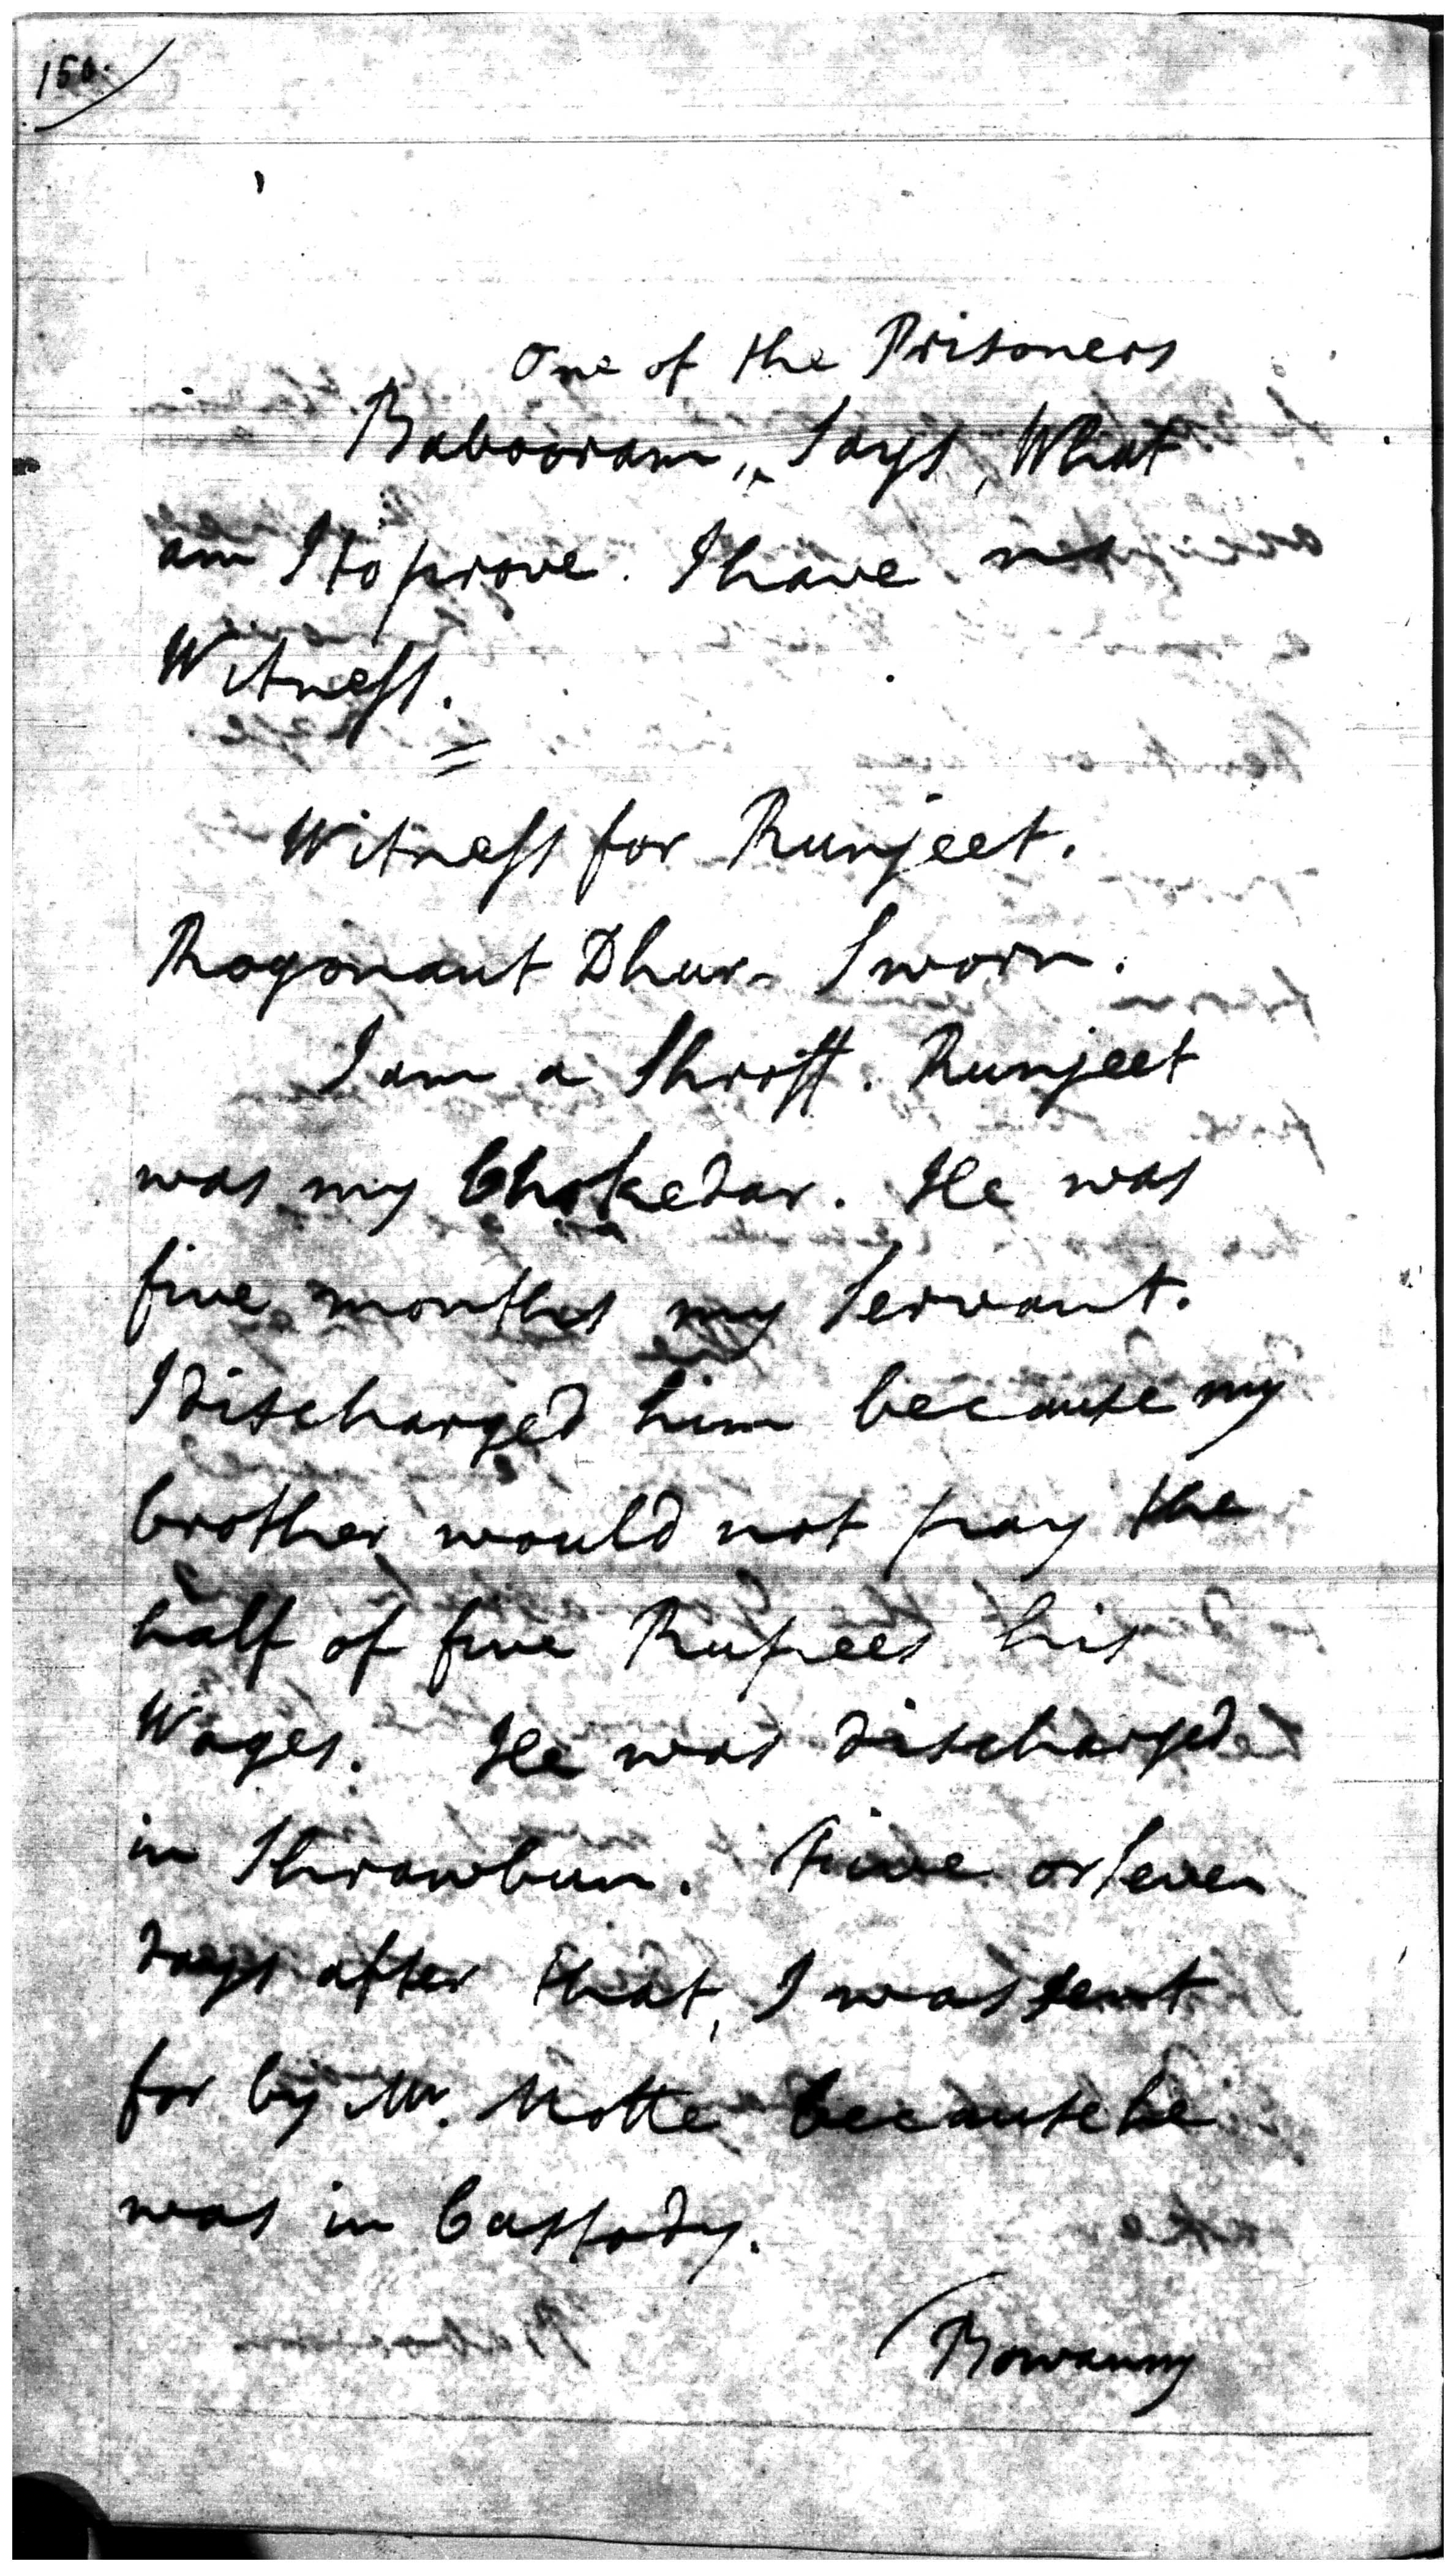 150.
One of the Prisoners
Babooram, ^ Says, What
am I to prove. I have no
Witness.
=
Witness for Runjeet.
Rogonaut Dhur - Sworn.
I am a Shroff. Runjeet
was my Chokedar. He was
five months my Servant.
I discharged him because my
brother would not pay the
half of five Rupees his
Wages. He was discharged
in Shrawbun. Five or Seven
days after that, I was sent
for by Mr. Motte because he
was in Custody.
Bowanny